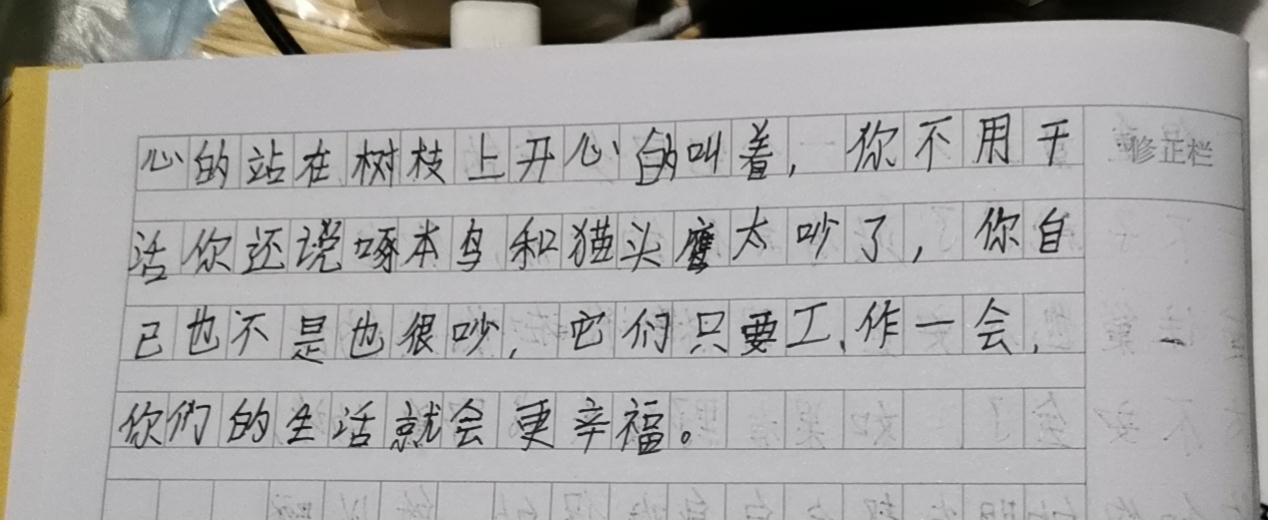 心的站在树枝上开心的叫着，你不用干
活你还说啄本鸟和猫头鹰太吵了，你自
己也不是也很吵，它们只要工作一会，
你们的生活就会更辛福。
修正栏